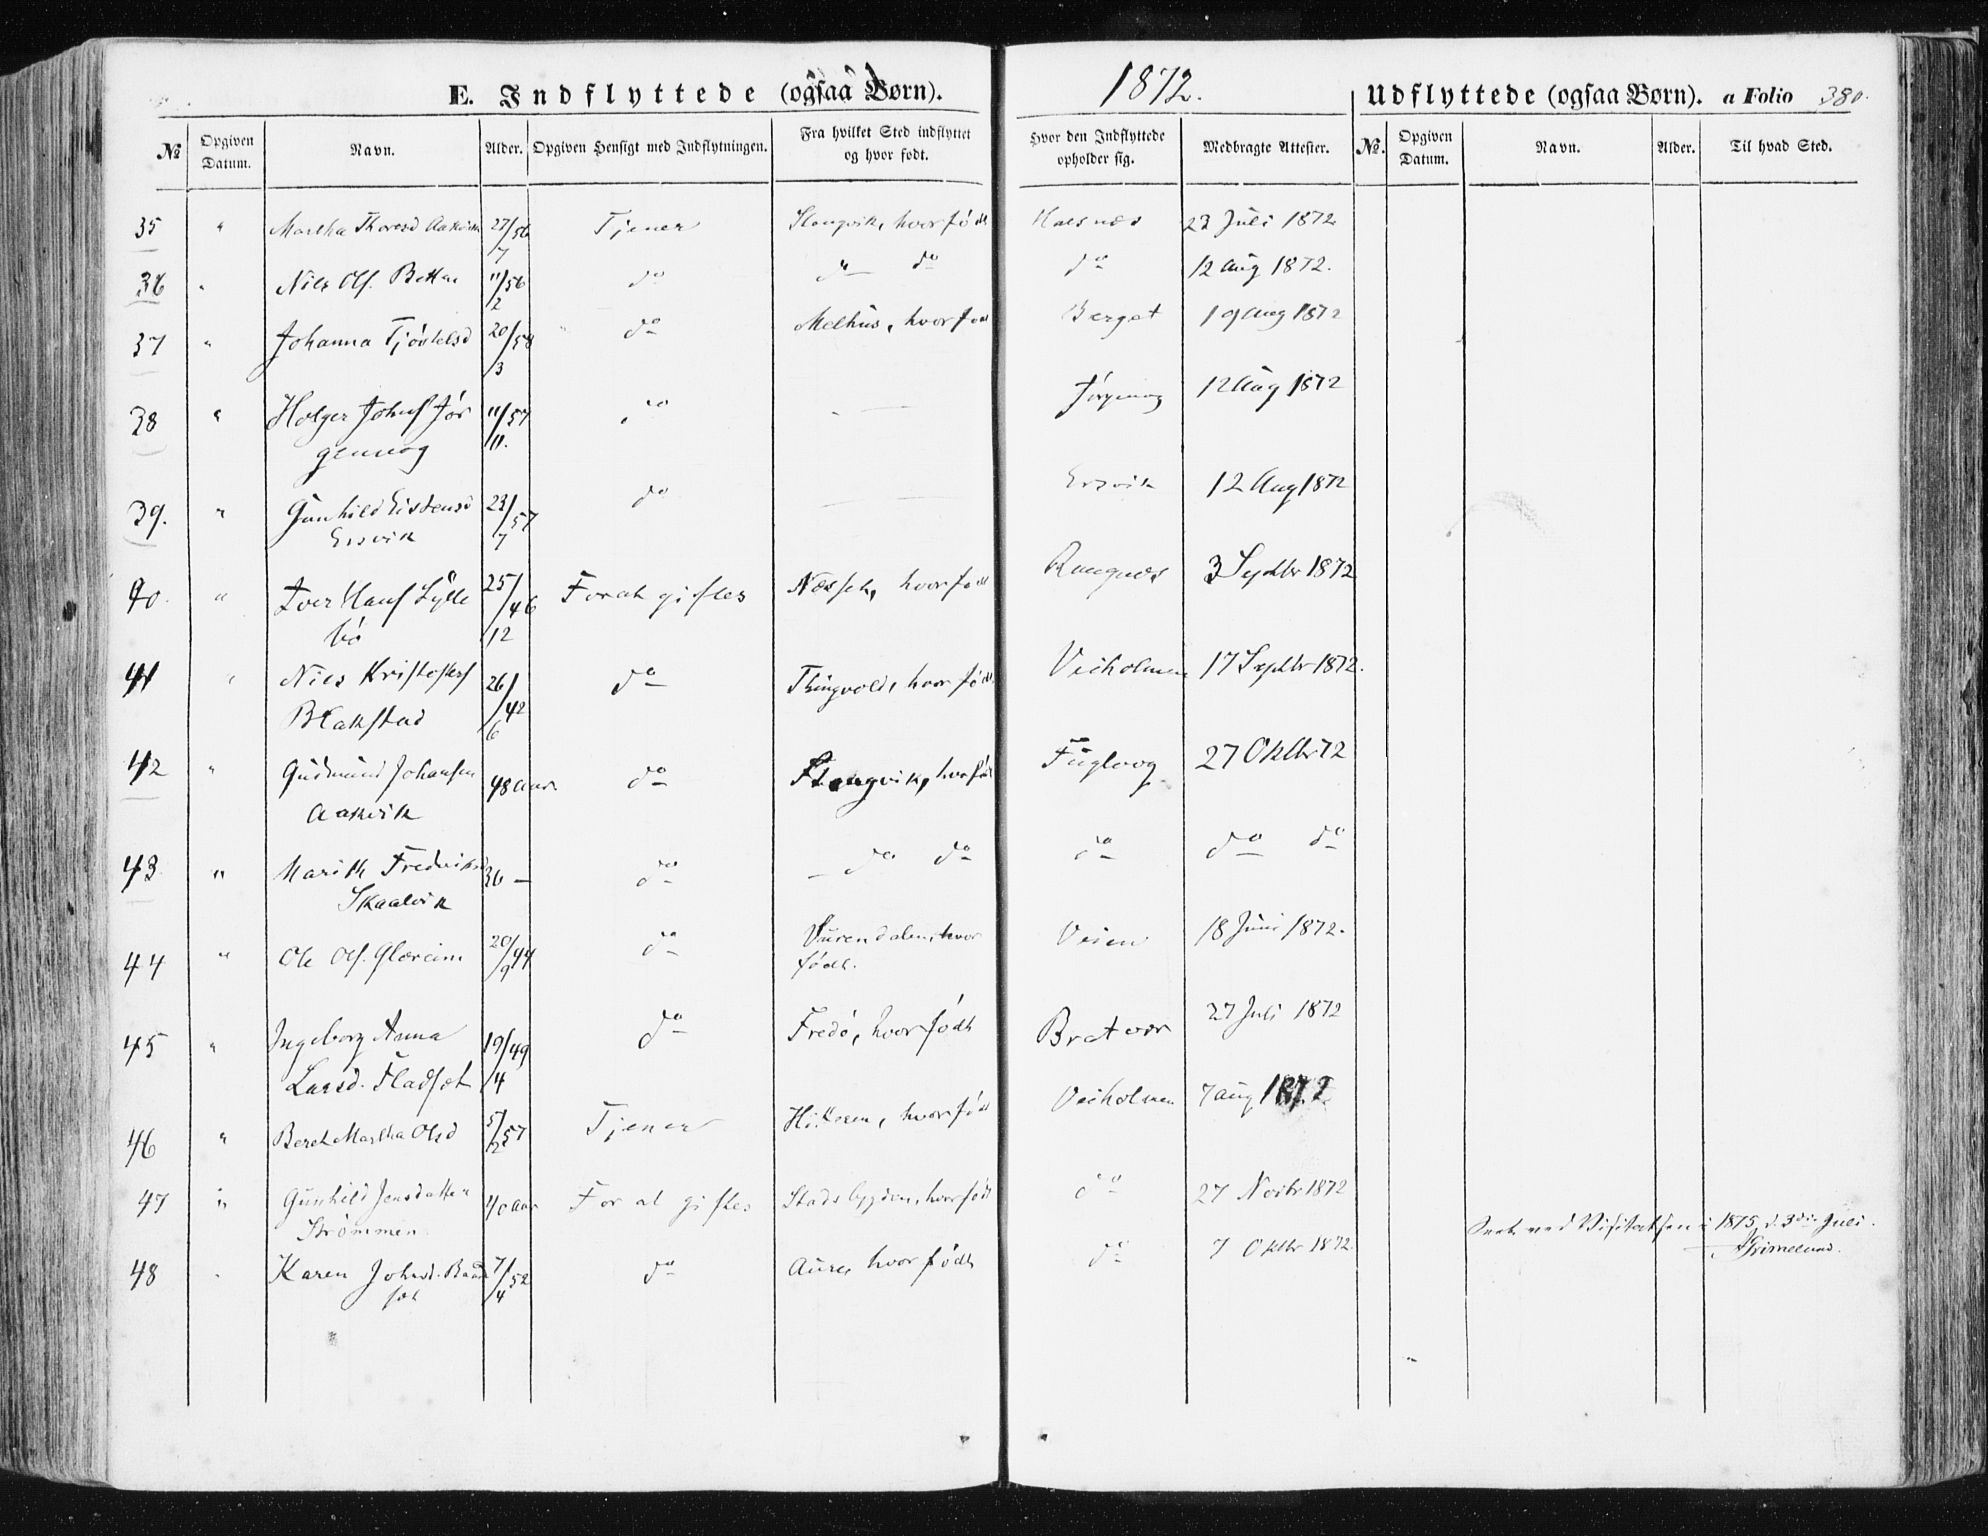 E. Indflyttede (ogsaa Børn).
1872.
Udflyttede (ogsaa Børn). a Folio 380.
№ Opgiven Datum. Navn. Alder. Opgiven Hensigt med Indflytningen. Fra hvilket Sted indflyttet og hvor født. Hvor den Indflyttede opholder sig. Medbragte Attester. №. Opgiven Datum. Navn. Alder. Til hvad Sted.
35 " Martha Thoresd Aakvik 27/7 56 Tjener Stangvik, hvor født 23 Juli 1872
36 " Niels Ols. 11/2 56 do do do do 12 Aug 1872.
37 " Johanna 20/3 58 do Melhus, hvor født Berget 19 Aug 1872
38 " Holger Johns Jør
genvog 11/11 57 do Jørgenvog 12 Aug 1872
39. " Gunhild Eistensd
Ersvik 23/7 57 do Ersvik 12 Aug 1872
40. " Iver Hans Lylle
bø 25/12 46 For at giftes Næsset, hvor født 3 Septbr 1872
41 " Niels Kristofers
Blakstad 26/6 42 do Thingvold, hvor født Veiholmen 17 Septbr 1872.
42 " Gudmund Johansen
Aakvik 48 Aar do Stangvik, hvor født Fuglvog 27 Oktbr 72
43 " Marith Fredriksd
Skaalvik 36 — do do do do do do
44 " Ole Ols. Glæreim 20/9 44 do Surendalen, hvor
født. Veien 18 Juni 1872.
45 " Ingeborg Anna
Larsd. Fladset 19/4 49 do Fredø, hvor født Bratvær 27 Juli 1872
46 " Beret Martha Olsd 5/2 57 Tjener Hitteren, hvor født Veiholmen 7 Aug 1872
47 " Gunhild Jensdatter
Strømmen 40 Aar For at giftes Stadsbygden, hvor født do 27 Novbr 1872
48 " Karen Johnsd.
set 7/4 52 do Aure, hvor født do 7 Oktbr 1872
Seet ved Visitatsen i 1875, d. 3die Juli.
Grimelund.